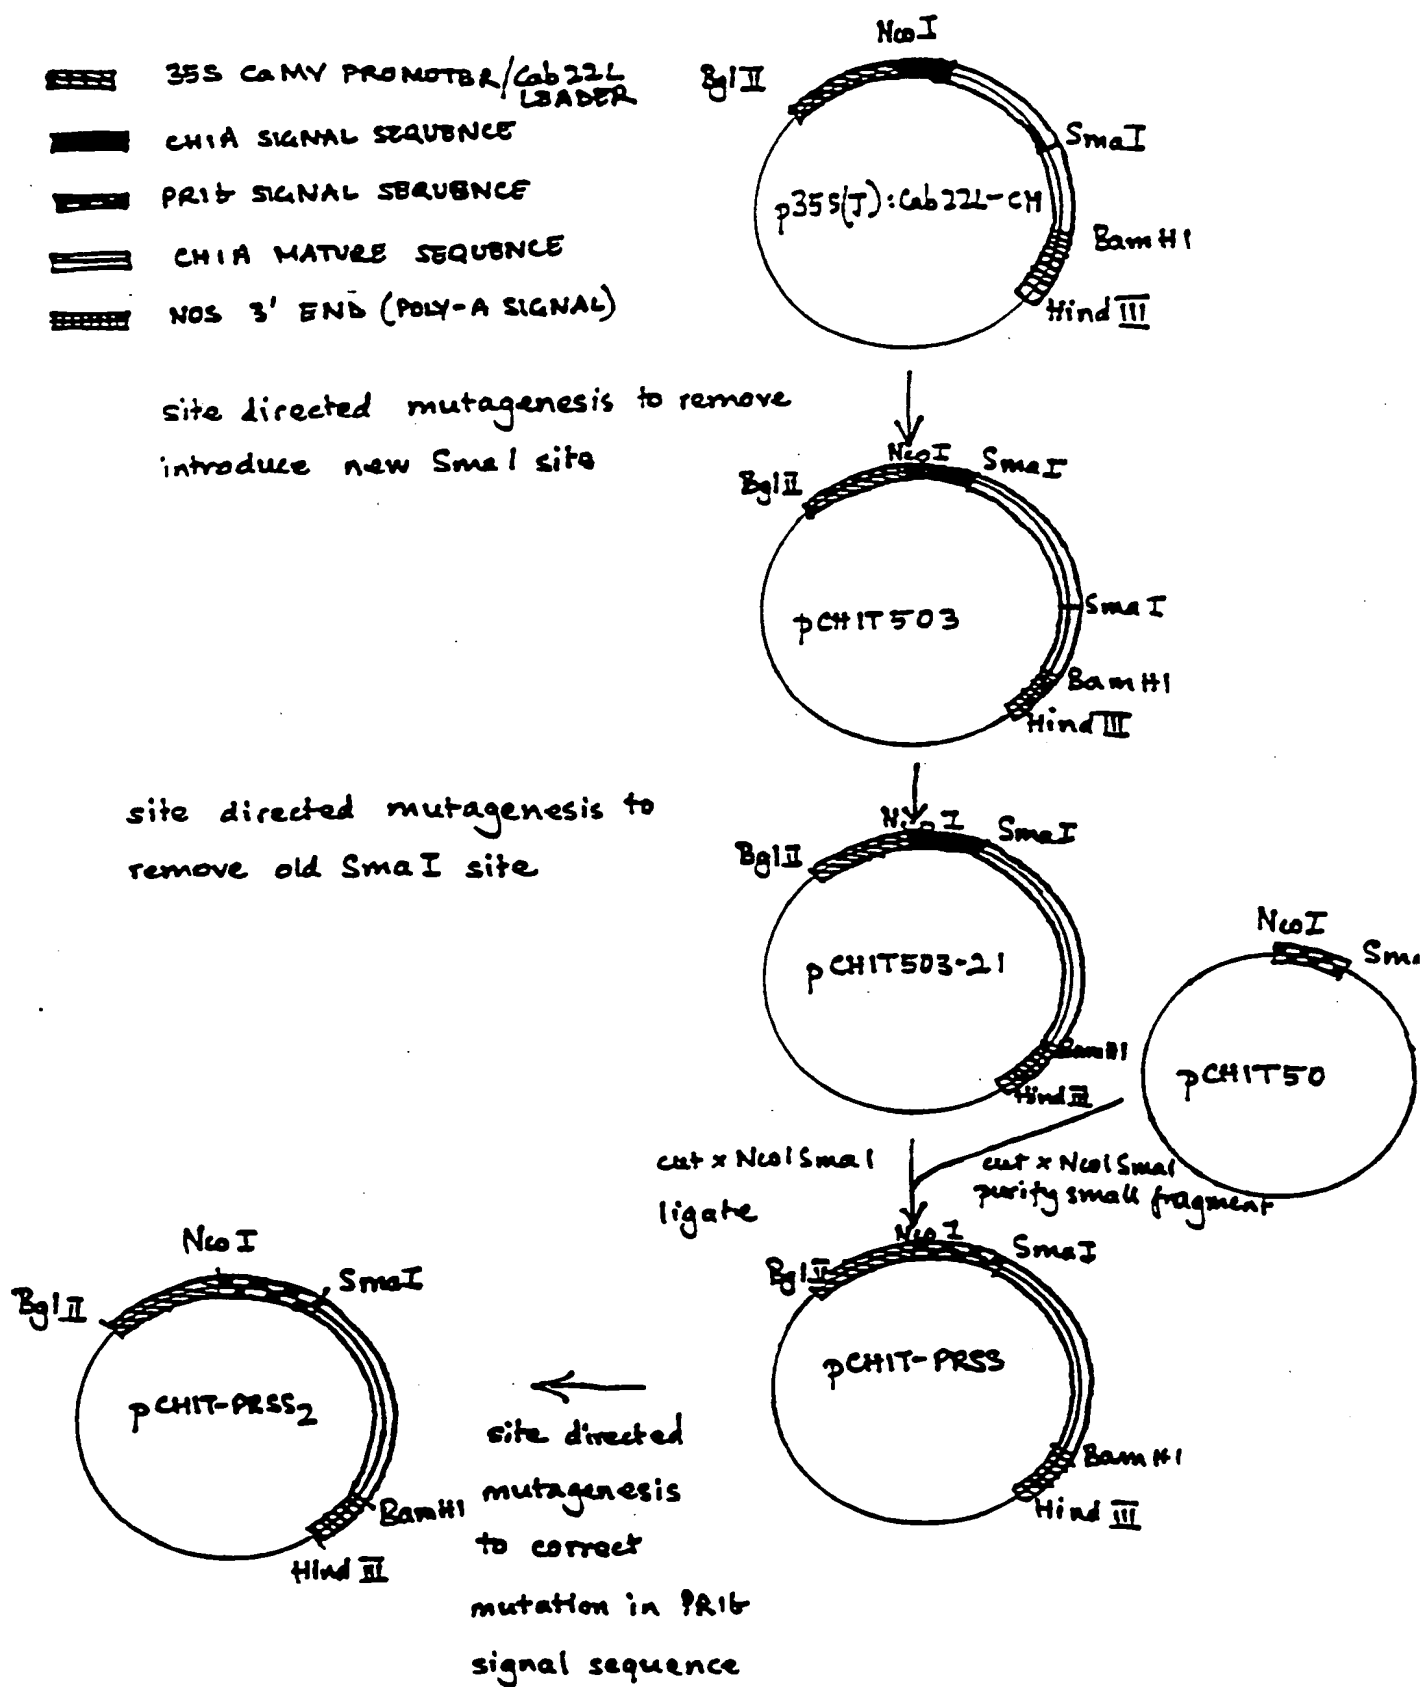 35S CaMV PROMOTER/Cab22L
LEADER
CHIA SIGNAL SEQUENCE
PR1b SIGNAL SEQUENCE
CHIA MATURE SEQUENCE
NOS 3' END (POLY-A SIGNAL)
NcoI
BglII
SmaI
p35S(J):Cab22L-CH
BamHI
HindIII
site directed mutagenesis to remove
introduce new SmaI site
NcoI
SmaI
BglII
pCHIT503
SmaI
BamHI
HindIII
site directed mutagenesis to
remove old SmaI site
NcoI
SmaI
BglII
pCHIT503-21
BamHI
HindIII
NcoI
Sma
pCHIT50
cut x NcoI SmaI
ligate
cut x NcoI SmaI
purify small fragment
NcoI
SmaI
BglII
pCHIT-PRSS
BamHI
HindIII
site directed
mutagenesis
to correct
mutation in PR1b
signal sequence
NcoI
SmaI
BglII
pCHIT-PRSS2
BamHI
HindIII